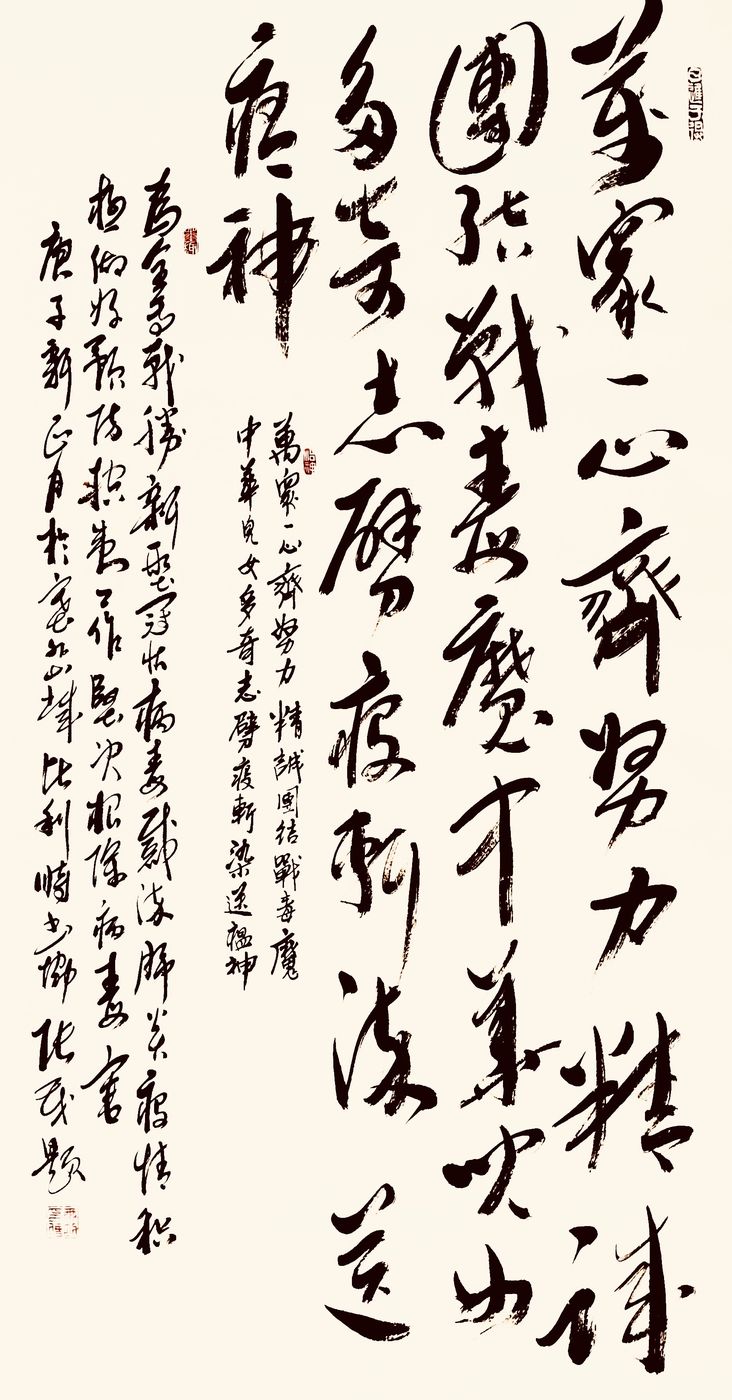 萬家一心齊努力精誠
團結戰毒魔中華兒女
多奇志劈疫斬染送
瘟神
萬家一心齊努力精誠團結戰毒魔
中華兒女多奇志劈疫斬染送瘟神
為全戰勝新型冠狀病毒感染肺炎疫情積
極做好預防控工作堅決根除病毒害
庚子新正月於山城比利時題